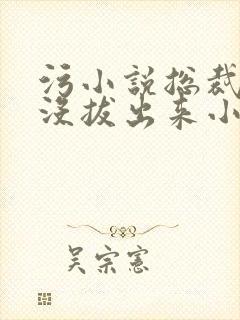 污小说总裁
没拔出来小
吴宗宪